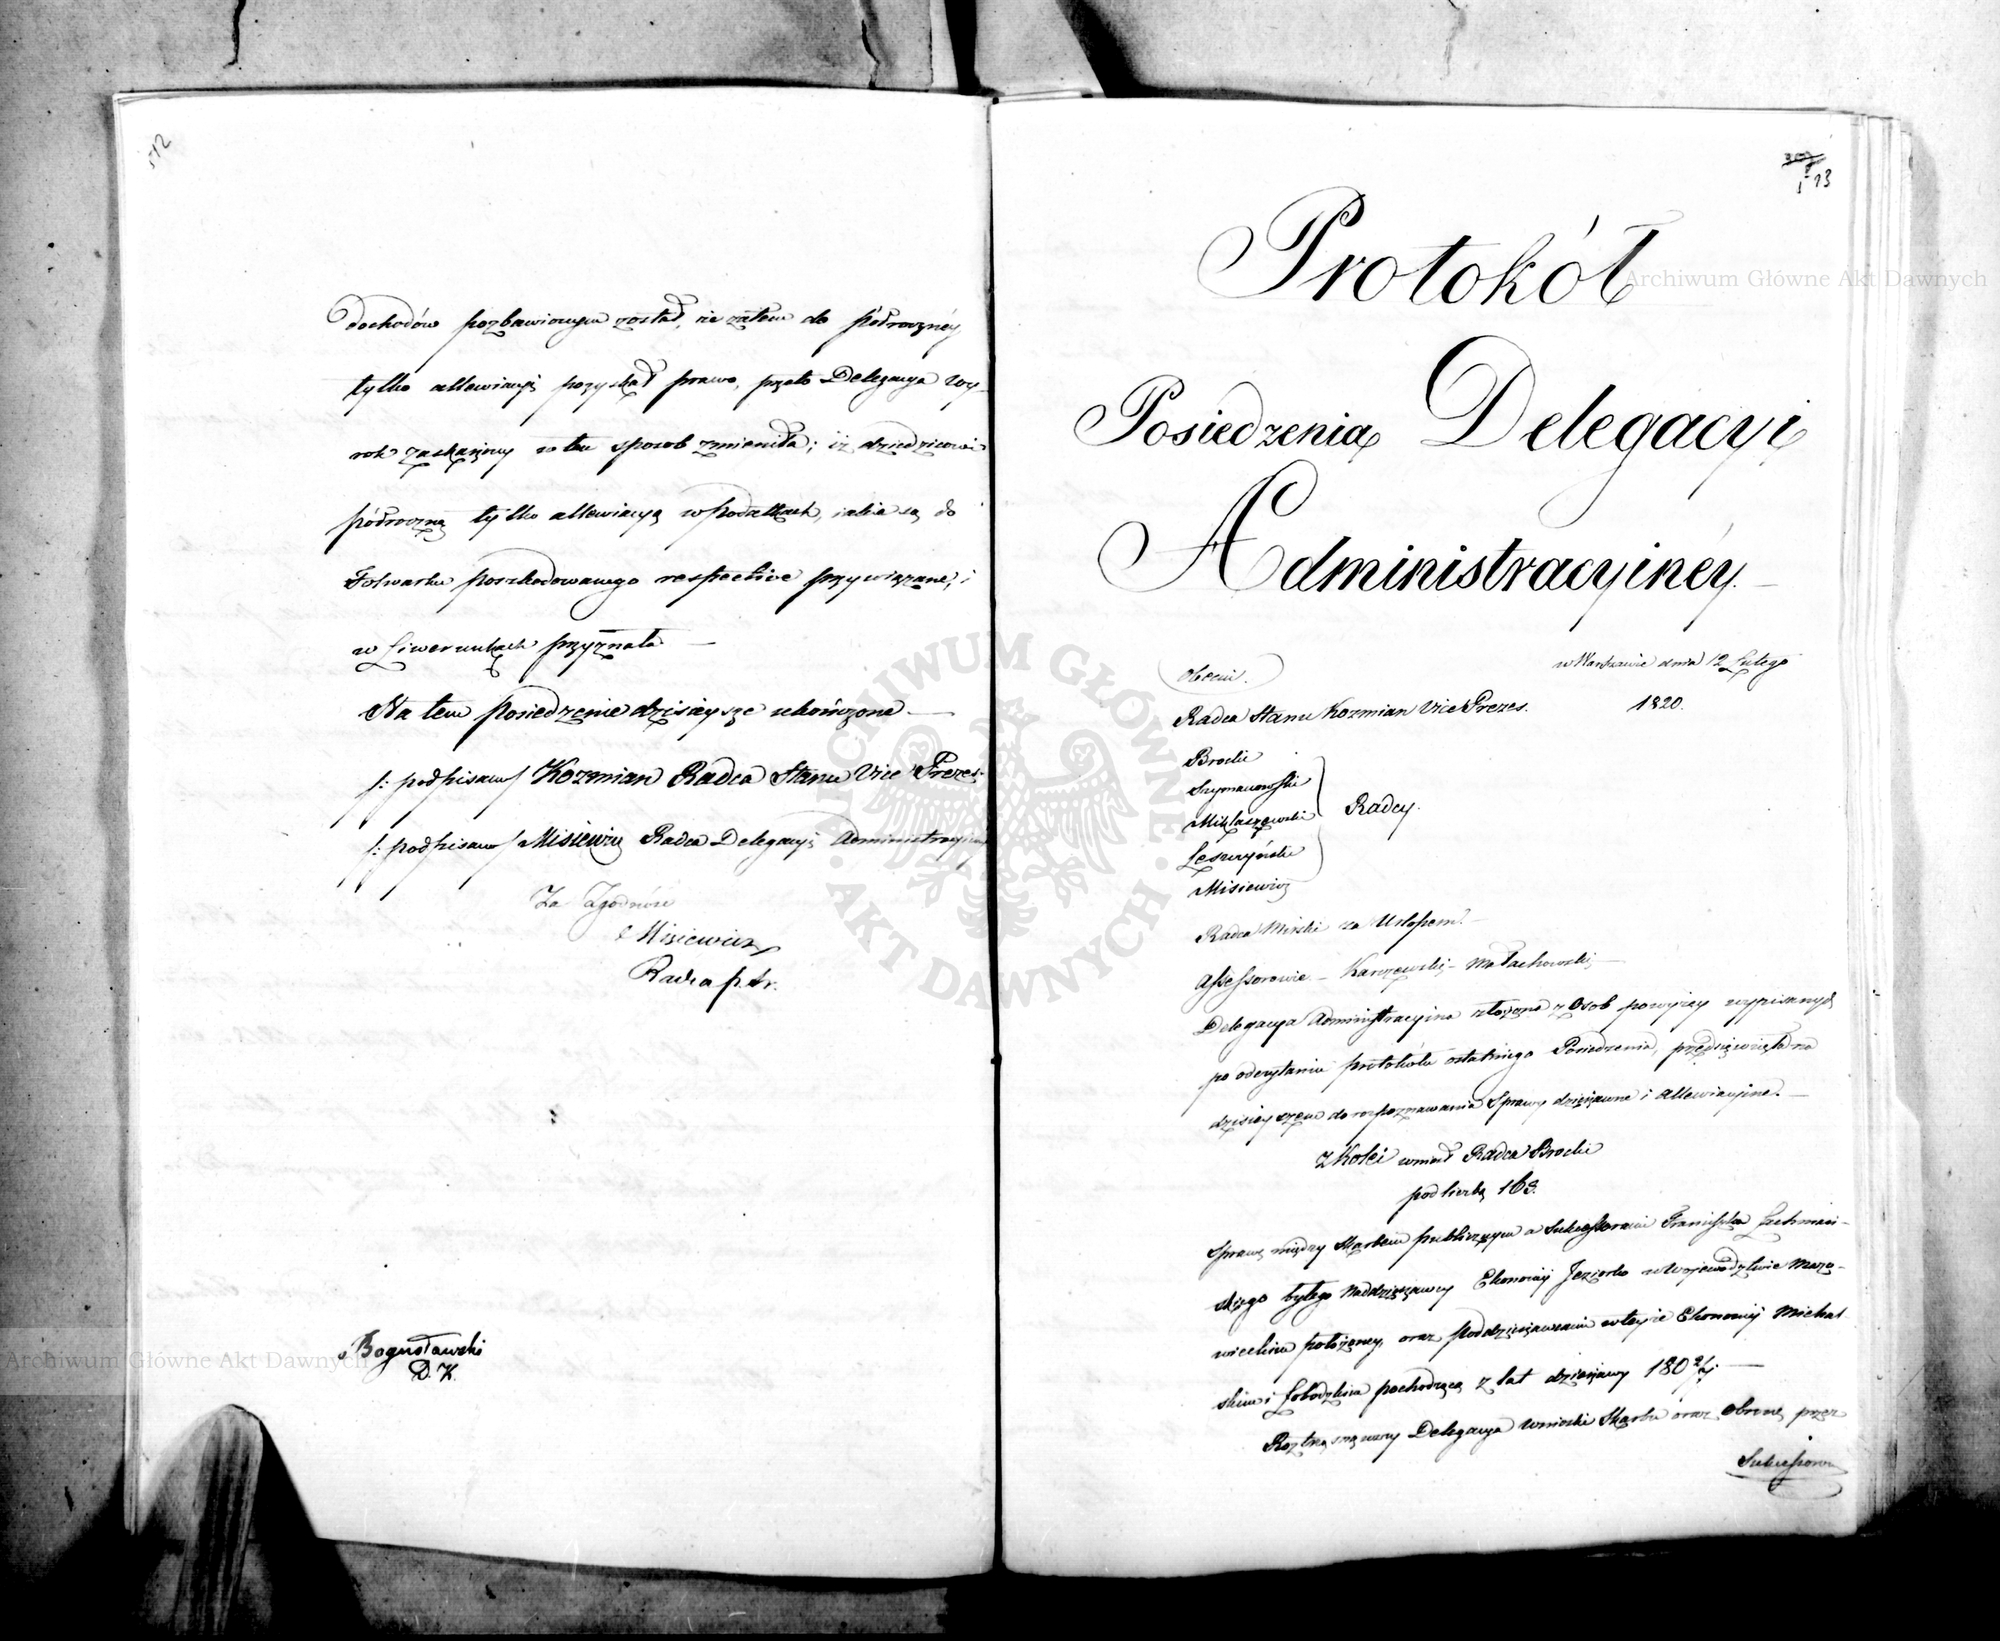 512
dochodów pozbawionym został, że zatem do półrocznéy
tylko allewiacyi pozyskał prawo, przeto Delegacya wy-
rok zaskarżony w ten sposob zmieniła; iż dziedzicowi
półroczną tylko allewiacyą w podatkach, jakie są do
Folwarku poszkodowanego respective przywiązane, i
w Liwerunkach przyznała —
Na tem posiedzenie dzisieysze ukończone —
/: podpisano/ Kozmian Radca Stanu Vice Prezes
/: podpisano/ Misiewicz Radca Delegacyi Administracyiney
Za Zgodność
Misiewicz
Radca p. Ar.
Bogusławski
D. K.
513
Protokół
Posiedzenia Delegacyi
Administracyinéy. —
w Warszawie dnia 12 Lutego
1820.
Obecni.
Radca Stanu Kozmian Vice Prezes.
Brocki
Szymanowski
Miklaszewski
Radcy.
Leszczyński
Misiewicz
Radca Mirski za Urlopem. —
Assessorowie — Karczewski — Małachowski —
Delegacya Administracyina złożona z Osob powyżey wypisanych
po odczytaniu protokółu ostatniego Posiedzenia, przedsięwzięła na
dzisieyszem do rozpoznawania Sprawy dzierżawne i allewiacyine. —
Z Kolei wniosł Radca Brocki
pod liczbą 163.
Sprawę między Skarbem publicznym a Sukcessorami Franciszka Lachmań-
skiego byłego Naddzierżawcy Ekonomij Jeziorko w Województwie Mazo-
wieckim położoney, oraz Poddzierżawcami w teyże Ekonomij Michal-
skim i Łobodzkim pochodzącą z lat dzierżawy 180 —
Roztrząsnąwszy Delegacya wnioski Skarbu oraz obronę przez
Sukcessorow